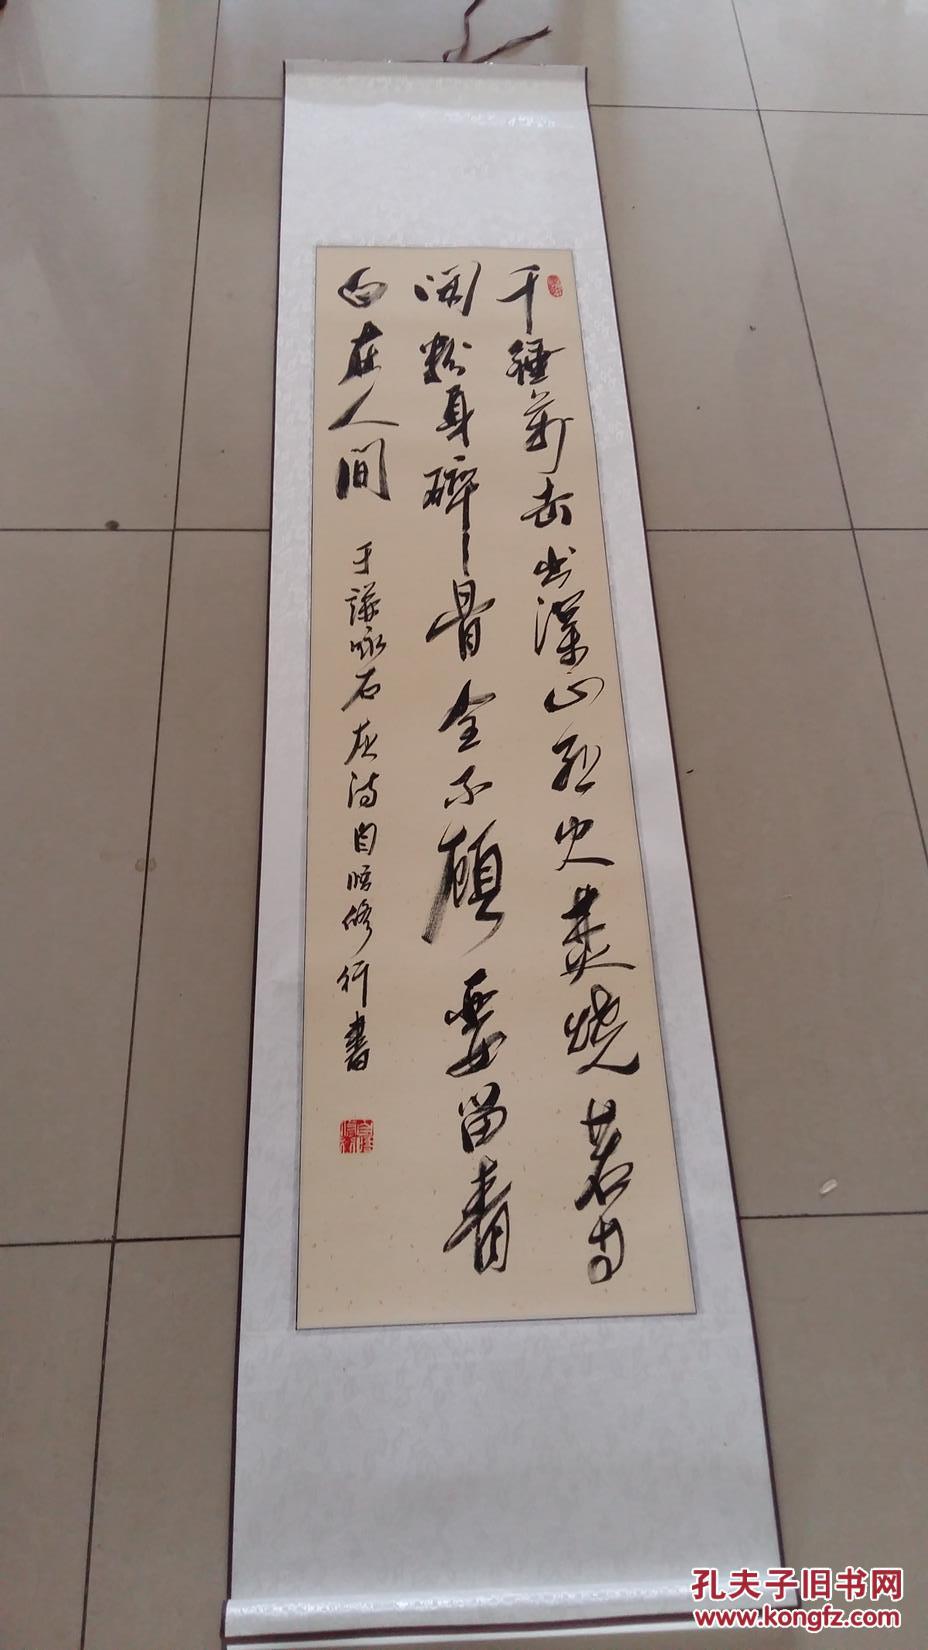 千锤万击出深山烈火焚烧若等
闲粉身碎骨全不顾要留青
白在人间
于謙咏石灰诗自悟修行書
孔夫子旧书网
www.kongfz.com